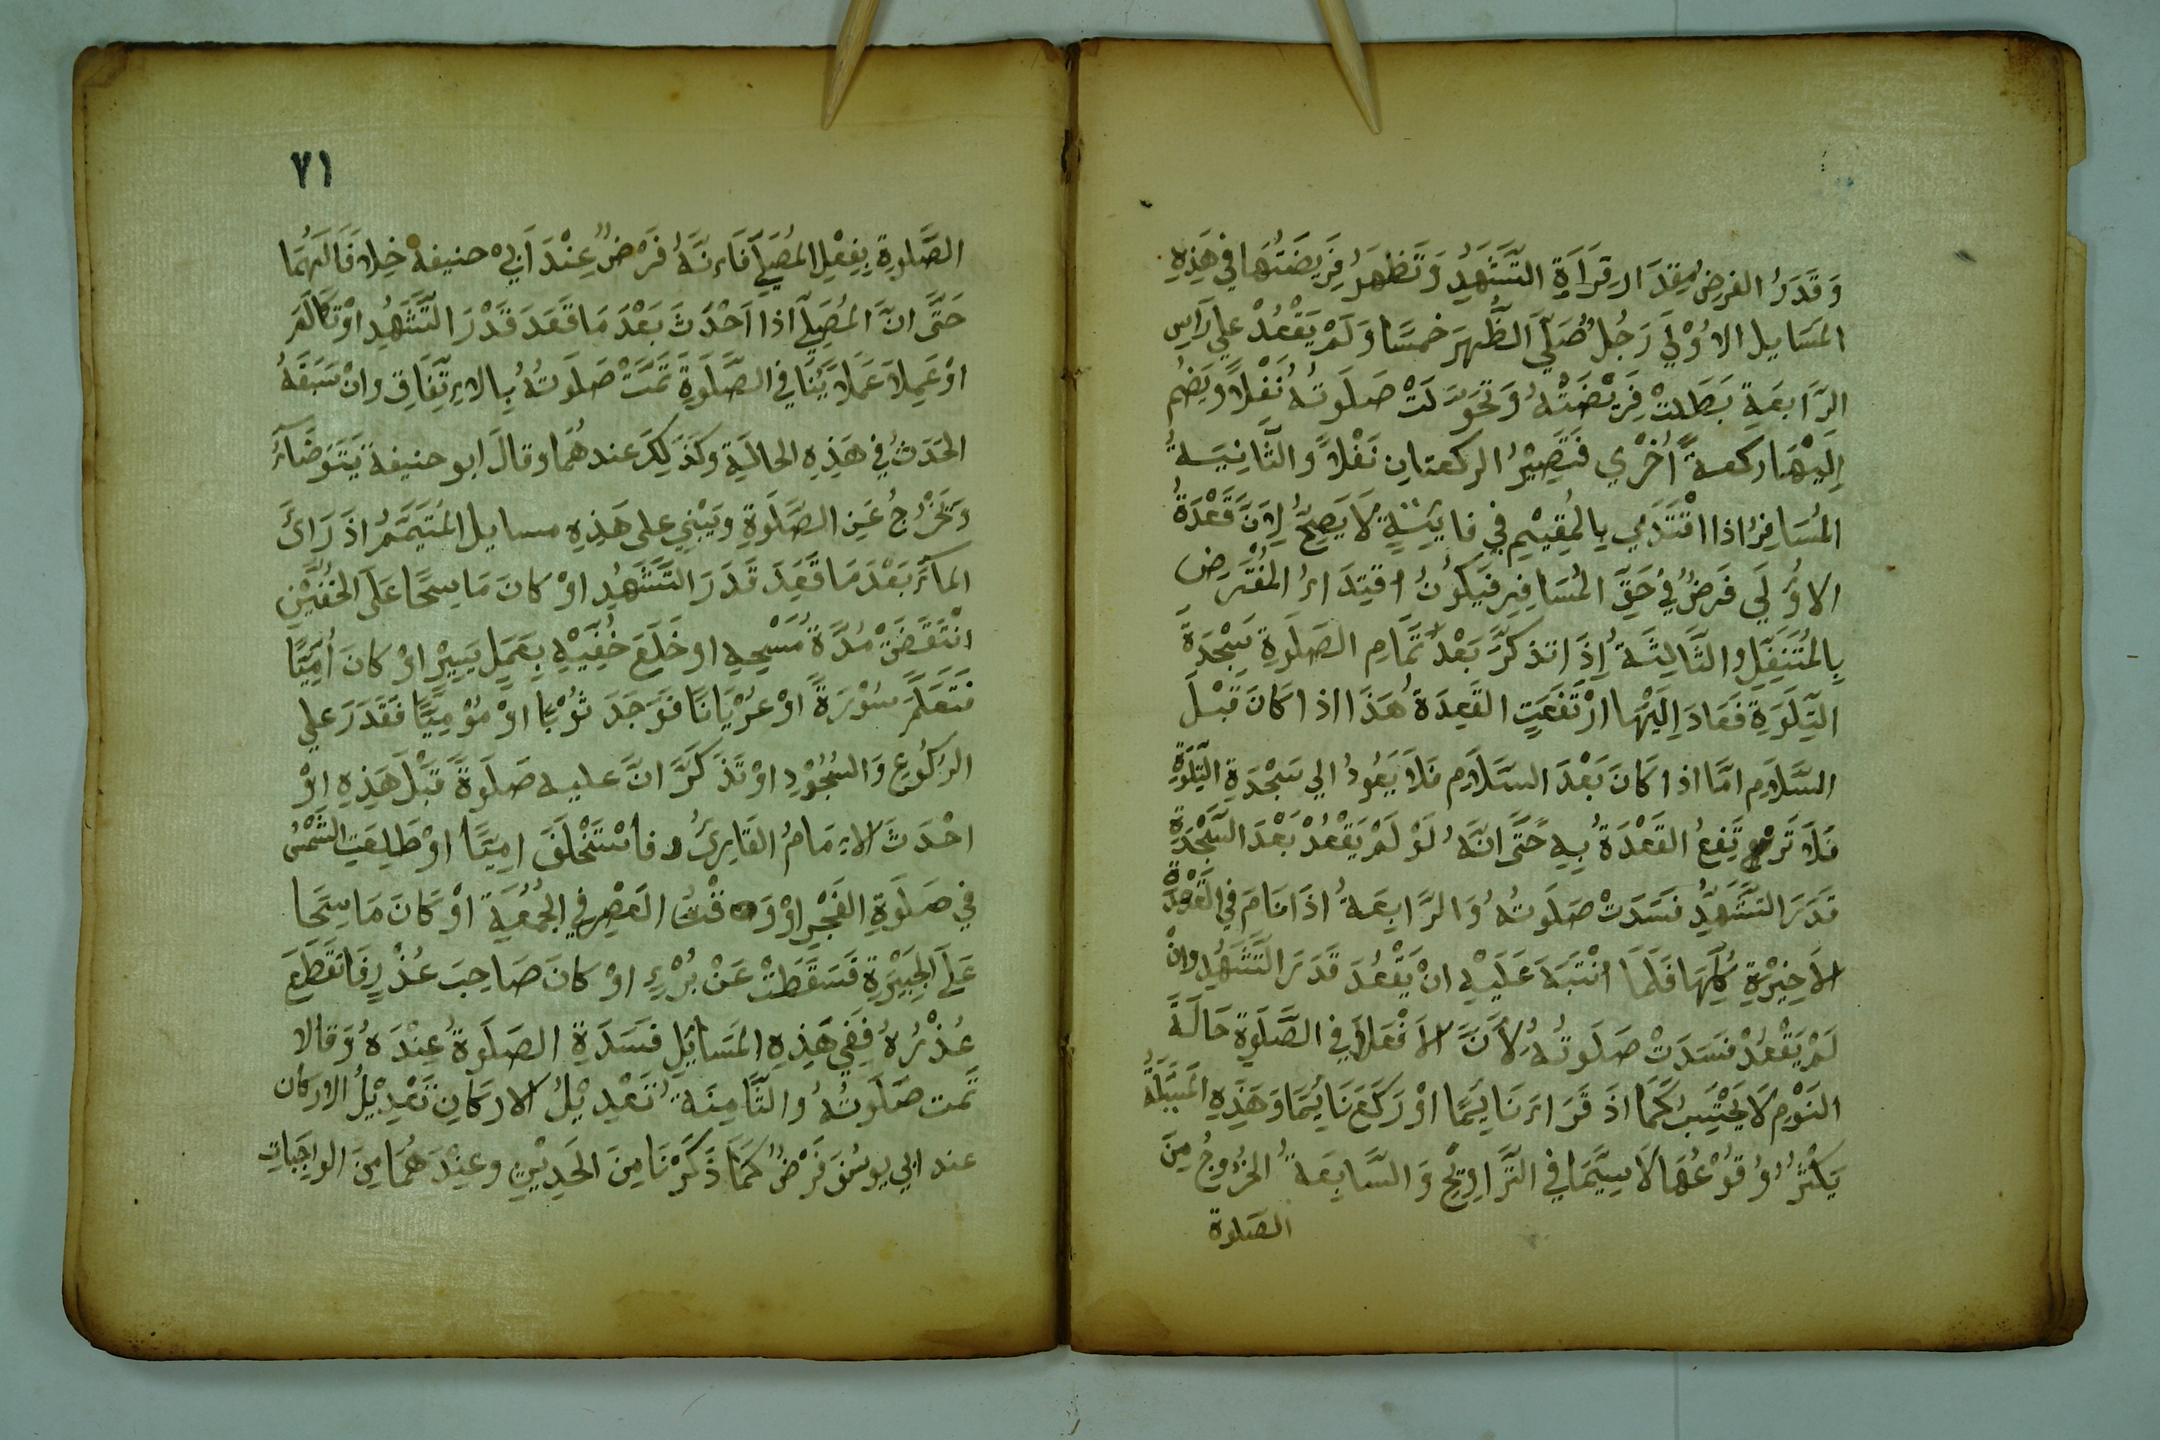 وَقَدَرُ الفرضِ مِقدَارِ قِرَاَةِ التَّشَهُدِ وَتَظهَرُ فَرِيضَتُهَا في هَذِهِ
المَسَايل الاُوْلَي رَجُلٌ صَلَّيَ الظُّهرَ خمسًا وَلَمْ يَقْعُدْ علي رَاَسِ
الرَّابعَةِ بَطَلتْ فَرِيْضَتُهُ وَتَحَوَّلَتْ صَلَوتُهُ نَفْلاً وَيَضُم
اِلَيْهَا ركعةً اُخْرَي فَتَصِيْرُ الركعتانِ نَفْلاً وَالثَّانِيَةُ
المُسَافِرُ اذا اقْتَدَي بِالمُقِيْمِ في فايِتَةٍ لَا يَصِحُّ لِاَنَّ قَعْدَةُ
الاوُلَي فَرضٌ فِيْ حَقِّ المُسَافِرِ فَيَكُونُ اقتِدَاءُ المُفْتَرِضِ
بِالمُتَنَفِّلِ وَالثَّالِثَةُ اِذَا تذكرَّ بَعْدَ تَمَامِ الصَلَوةِ سَجْدَةَ
التِّلَوَةِ فَعَادَ اِلَيْهَا ارْتَفَعَتِ القَعِدَةُ هَذَا اذا كَانَ قَبْلَ
السَّلَامِ امَّا اذا كَانَ بَعْدَ السَّلَامِ فَلَا يَعُودُ الي سَجْدَةِ التِّلَوَةِ
فَلَا تَرْتَفِعُ القَعْدَةُ بِهِ حَتَّي انَّهُ لَوْ لَمْ يَقْعُدْ بَعْدَ السَّجْدَةِ
قَدَرَ التَشَهُّدِ فَسَدَتْ صَلَوتُهُ وَالرَّابِعَةُ اذَا نَامَ في القَعْدَةِ
الاَخِيْرَةِ كُلِّهَا فَلَمَّا انْتَبَهَ عَلَيْهِ انْ يَقْعُدَ قَدَرَ التَّشَهُدِ وَانْ
لَمْ يَقْعُدْ فَسَدَتْ صَلَوتُهُ لِاَنَّ الاَفْعَالَ في الصَّلَوةِ حَالَةَ
النَوْمِ لَا يُحْتَسَبُ كَمَا اذَ قَرَاءَ نَايِمًا اوْ رَكَعَ نَايُمَا وَهَذِهِ المَسْئَلَةُ
يَكْثُرُ وُقُوْعُهَا لَا سِيَّمَا في التَّرَاوِيْحِ وَالسَّابِعَةُ الخُرُوجُ مِنَ
الصَلوة
٧١
الصَّلَوةِ بِفِعْلِ المُصَلِّي فَانَّهُ فَرْضٌ عِنْدَ اَبِيْ حنيفة خِلافًا لَهُمَا
حَتَّي انَّ المُصَلِّي اذا اَحْدَثَ بَعْدَ مَا قَعَدَ قَدْرَ التَّشَهُدِ اوْ تَكَلَّمَ
اوْ عَمِلَ عَمَلاً يُنَافي الصَّلَوةَ تَمَّتْ صَلَوتُهُ بِالاِتِّفَاقِ وانْ سَبَقَهُ
الحَدَثُ في هَذِهِ الحالَةِ وكَذَلِكَ عندهُمَا وقالَ ابو حنيفة يَتَوَضَّاءُ
وَيَخْرُجُ عَنِ الصَّلَوةِ ويَبْنِي على هَذِهِ مسايل المُتَيَمِّمُ اذَ رَايَ
المآءَ بَعْدَ مَا قَعِدَ قَدَرَ التَّشَهُدِ اوْ كانَ مَاسِحًا عَلَى الخُفَّيْنِ
انْتَقَضَتْ مُدَّةُ مَسْحِهِ او خَلَعَ خُفَّيْهِ بِعَمَلِ يَسِيْرِ اوْ كانَ اُمِيًّا
فَتَعَلَّمَ سُوْرَةً اوْ عُرْيَانًا فَوَجَدَ ثَوْبًا اوْ مُوْمِيًّا فَقَدَرَ علي
الركُوعِ وَالسُجُوْدِ اوْ تَذَكَّرَ انَّ عليه صَلَوةً قَبْلَ هَذِهِ اوْ
احْدَثَ الاِمَامُ القَارِىُ فاسْتَخْلَفَ امِيًّا اوْ طَلِعَتِ الشَّمْسُ
في صَلَوةِ الفَجْرِ اوْ وَقْتُ العَصْرِ في الجُمُعَةِ اوْ كَانَ مَاسِحَا
عَلَي الجَبِيْرَةِ فَسَقَطَتْ عَنْ بُرْءٍ اوْ كانَ صَاحِبَ عُذْرٍ فَانْقَطَعَ
عُذْرُهُ فَفِي هَذِهِ المَسَائِلِ فَسَدَةِ الصَلَوةُ عِنْدَهُ وَقالا
تَمت صَلَوتُهُ والثَّامِنَةُ تَعْدِيْلُ الارَكَانِ تَعْدِيْلُ الاركان
عند ابي يوسُفَ فَرْضٌ كَمَا ذَكَرْنَا مِنَ الحَدِيْثِ وعِنْدَهُمَا مِنَ الواجِبَاتِ